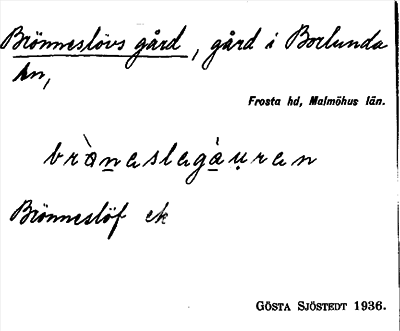 Brönneslövs gård, gård i Borlunda
sn,
Frosta hd, Malmöhus län.
brὰn̲aslagὰ̲u̩ran
Brönneslöf ek
GÖSTA SJÖSTEDT 1936.